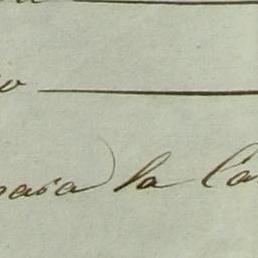 para la Ca